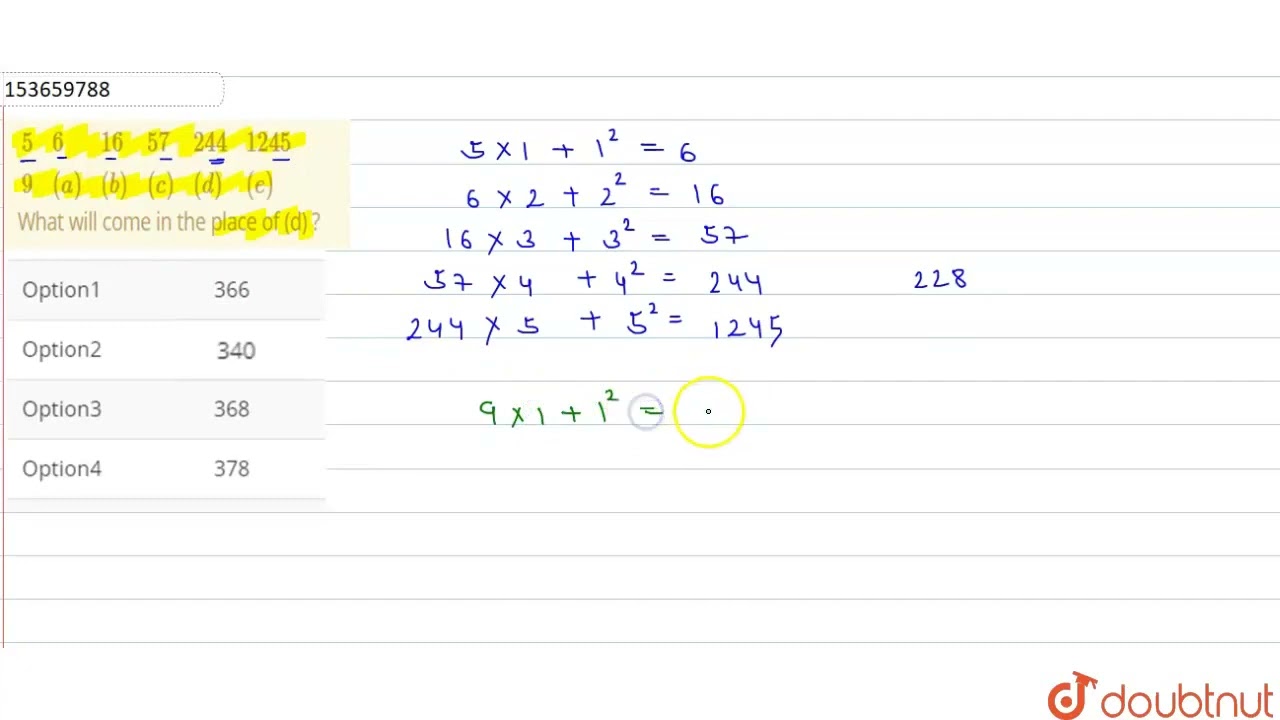 153659788
5 6 16 57 244 1245
9 (a) (b) (c) (d) (e)
What will come in the place of (d) ?
Option1 366
Option2 340
Option3 368
Option4 378
5 × 1 + 1² = 6
6 × 2 + 2² = 16
16 × 3 + 3² = 57
57 × 4 + 4² = 244
228
244 × 5 + 5² = 1245
9 × 1 + 1² =
doubtnut